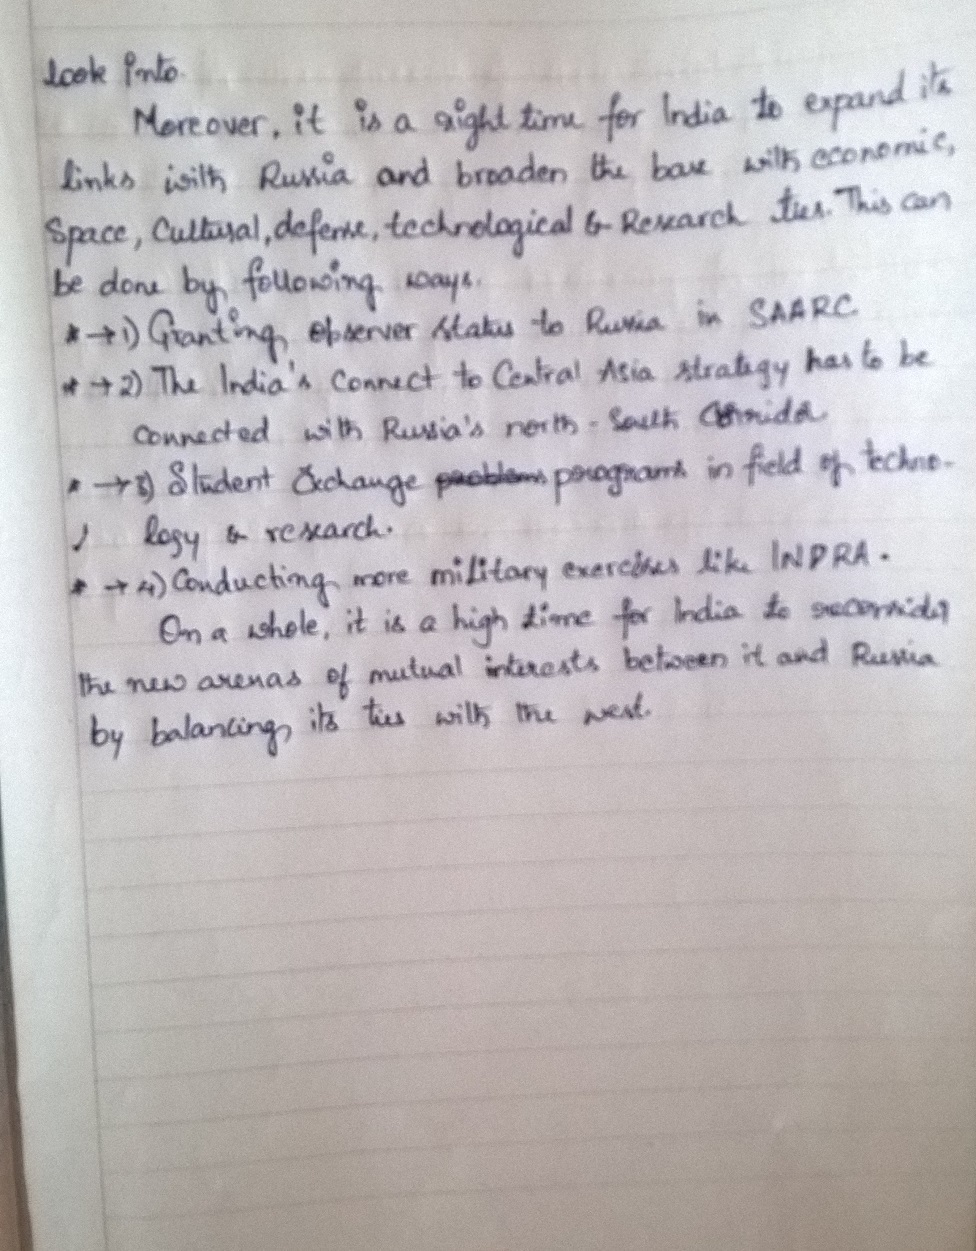 look into.
Moreover, it is a right time for India to expand its
links with Russia and broaden the base with economic,
Space, Cultural, defense, technological & Research ties. This can
be done by following ways.
* → 1) Granting observer status to Russia in SAARC
* → 2) The India's Connect to Central Asia strategy has to be
connected with Russia's north - South Corridor
* → 3) Student Exchange problems programs in field of techno-
logy & research.
* → 4) Conducting more military exercises like INDRA.
On a whole, it is a high time for India to reconsider
the new arenas of mutual interests between it and Russia
by balancing its ties with the west.